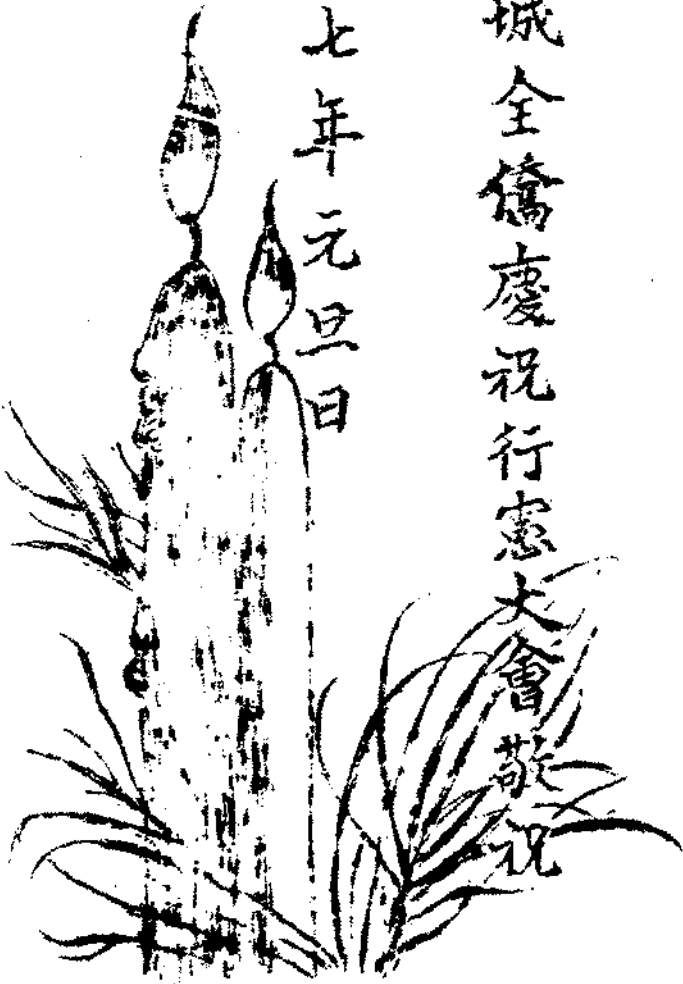 城全僑慶祝行憲大會敬祝
七年元旦日